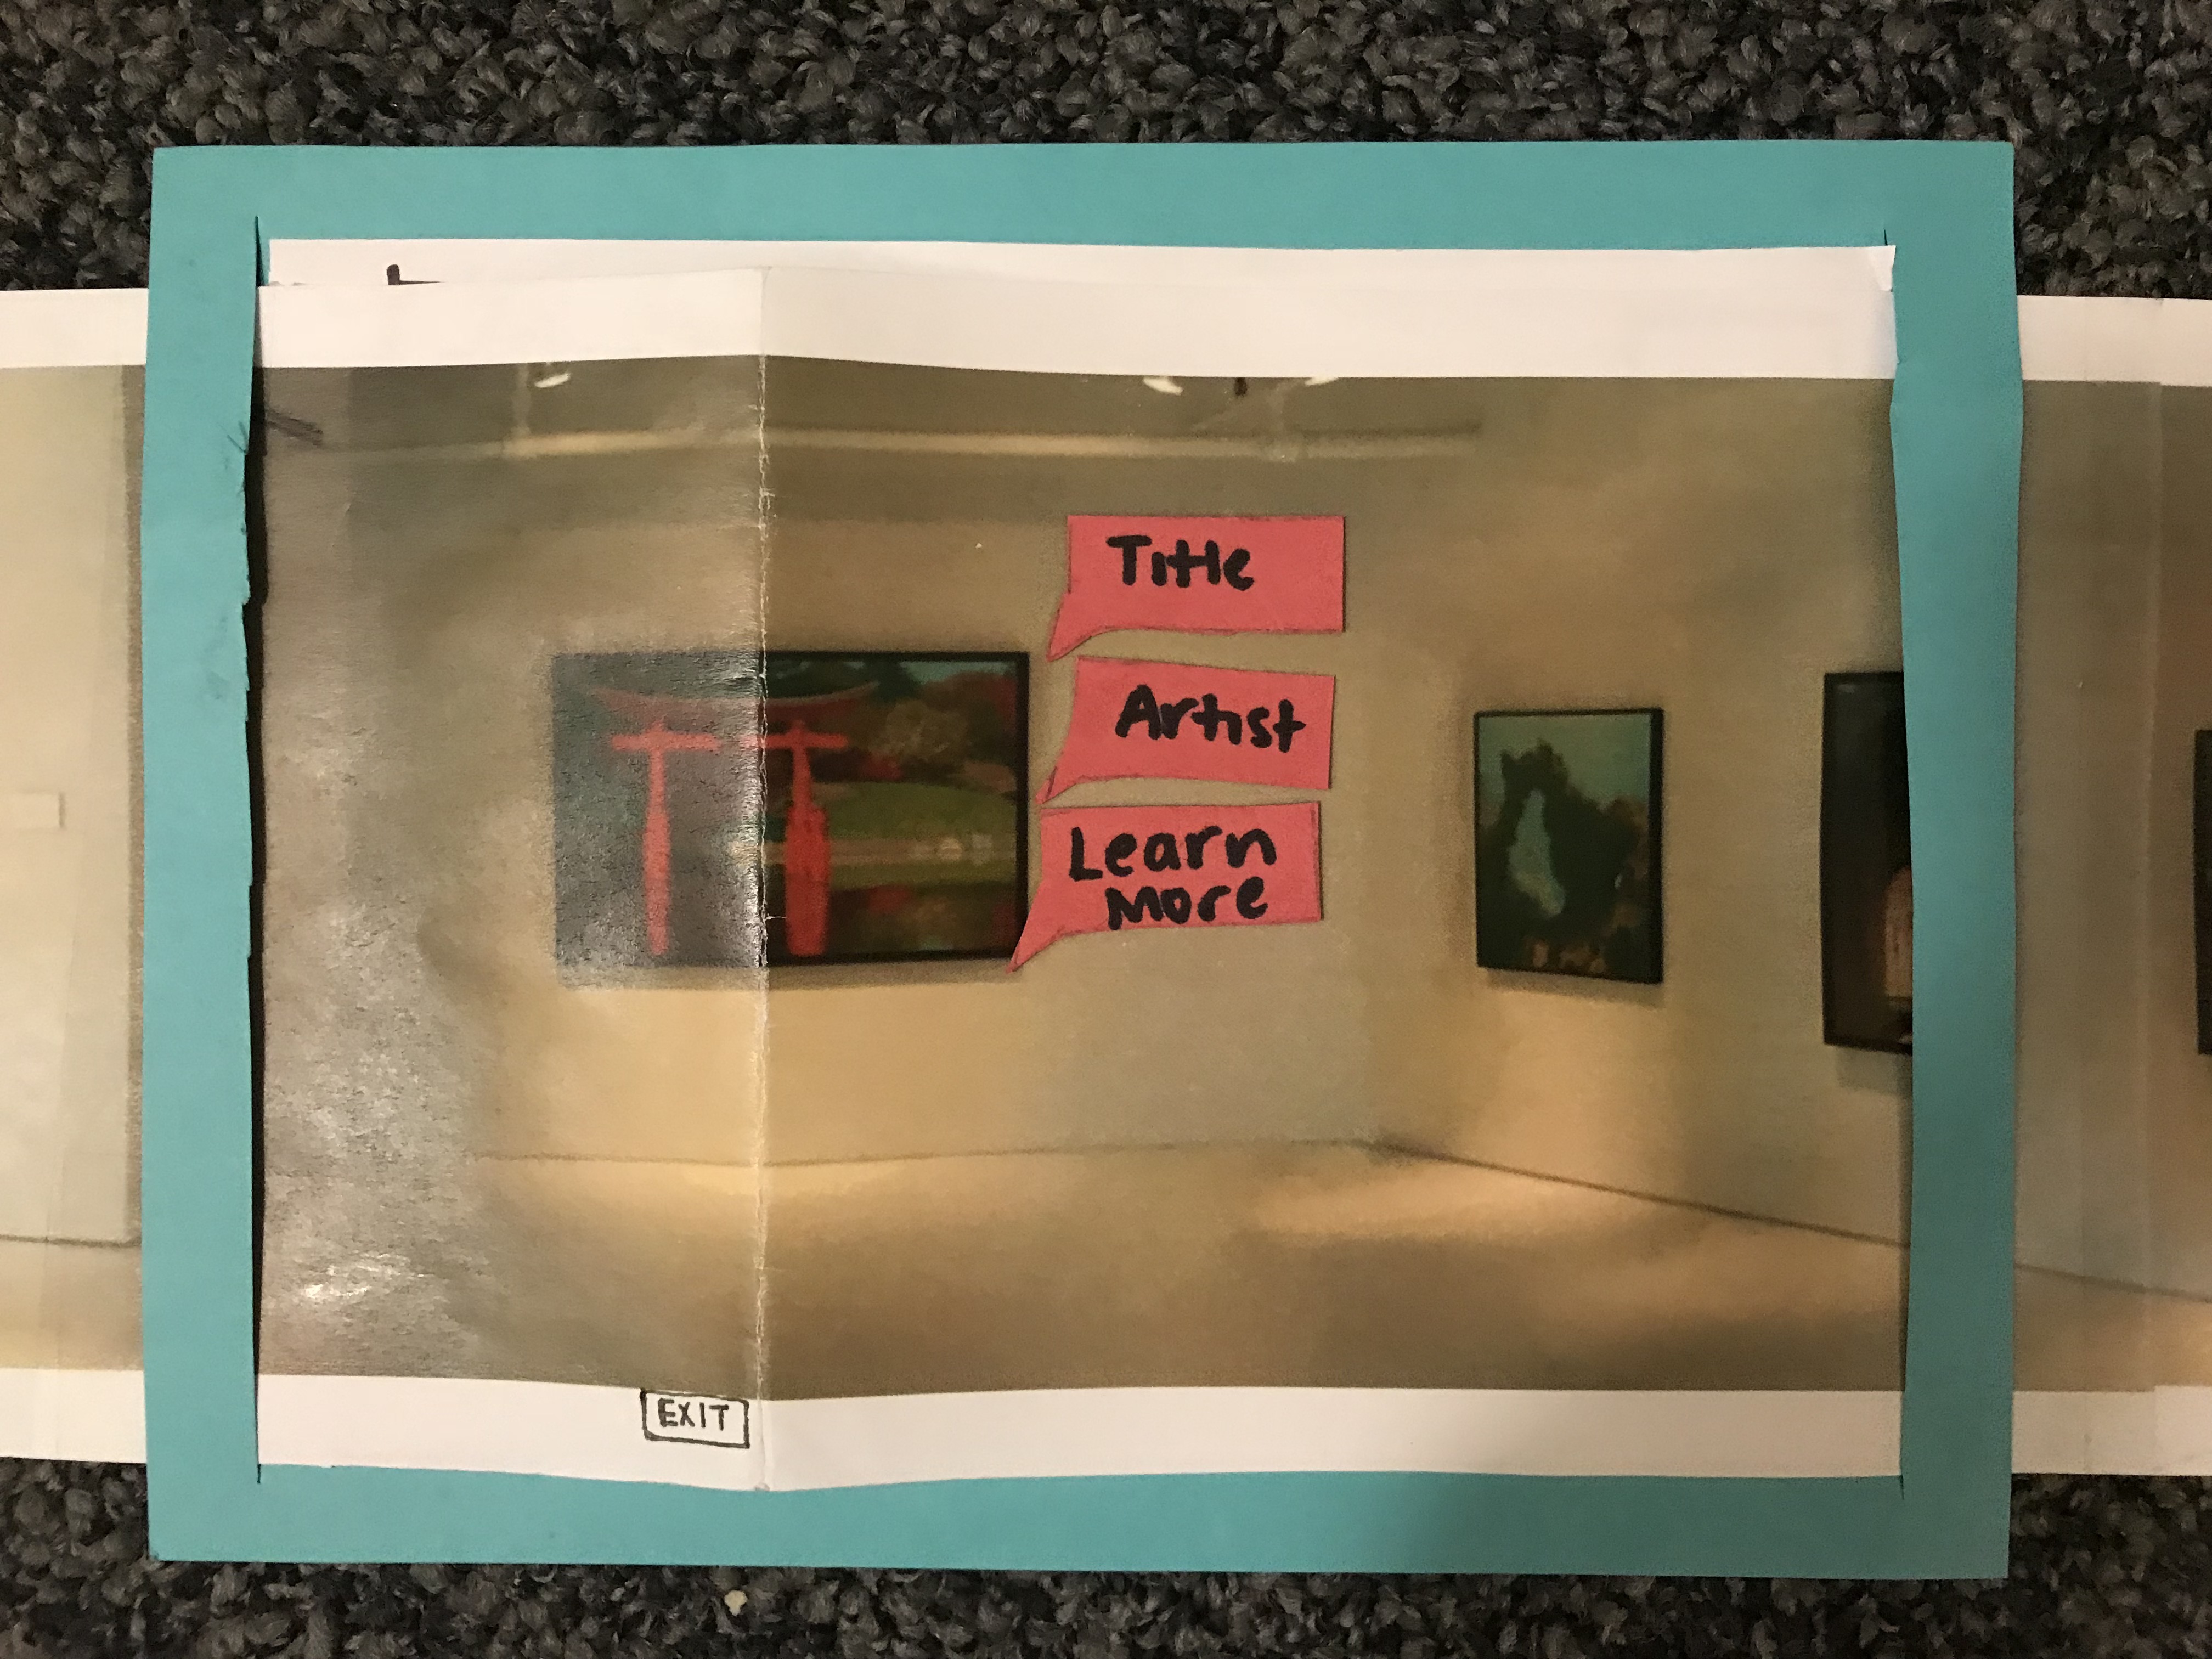 Title
Artist
Learn
More
EXIT